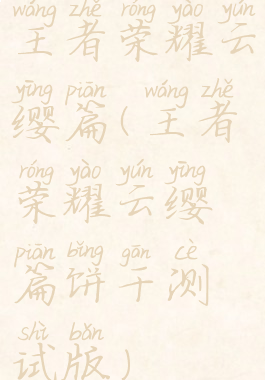 wáng zhě róng yào yún
王者荣耀云
yīng piān wáng zhě
缨篇(王者
róng yào yún yīng
荣耀云缨
piān bǐng gān cè
篇饼干测
shì bǎn
试版)